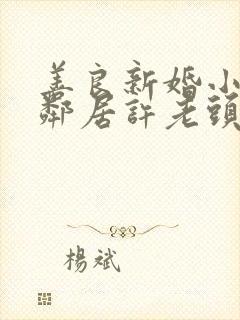 美良新婚小
鄰居許老頭
楊斌